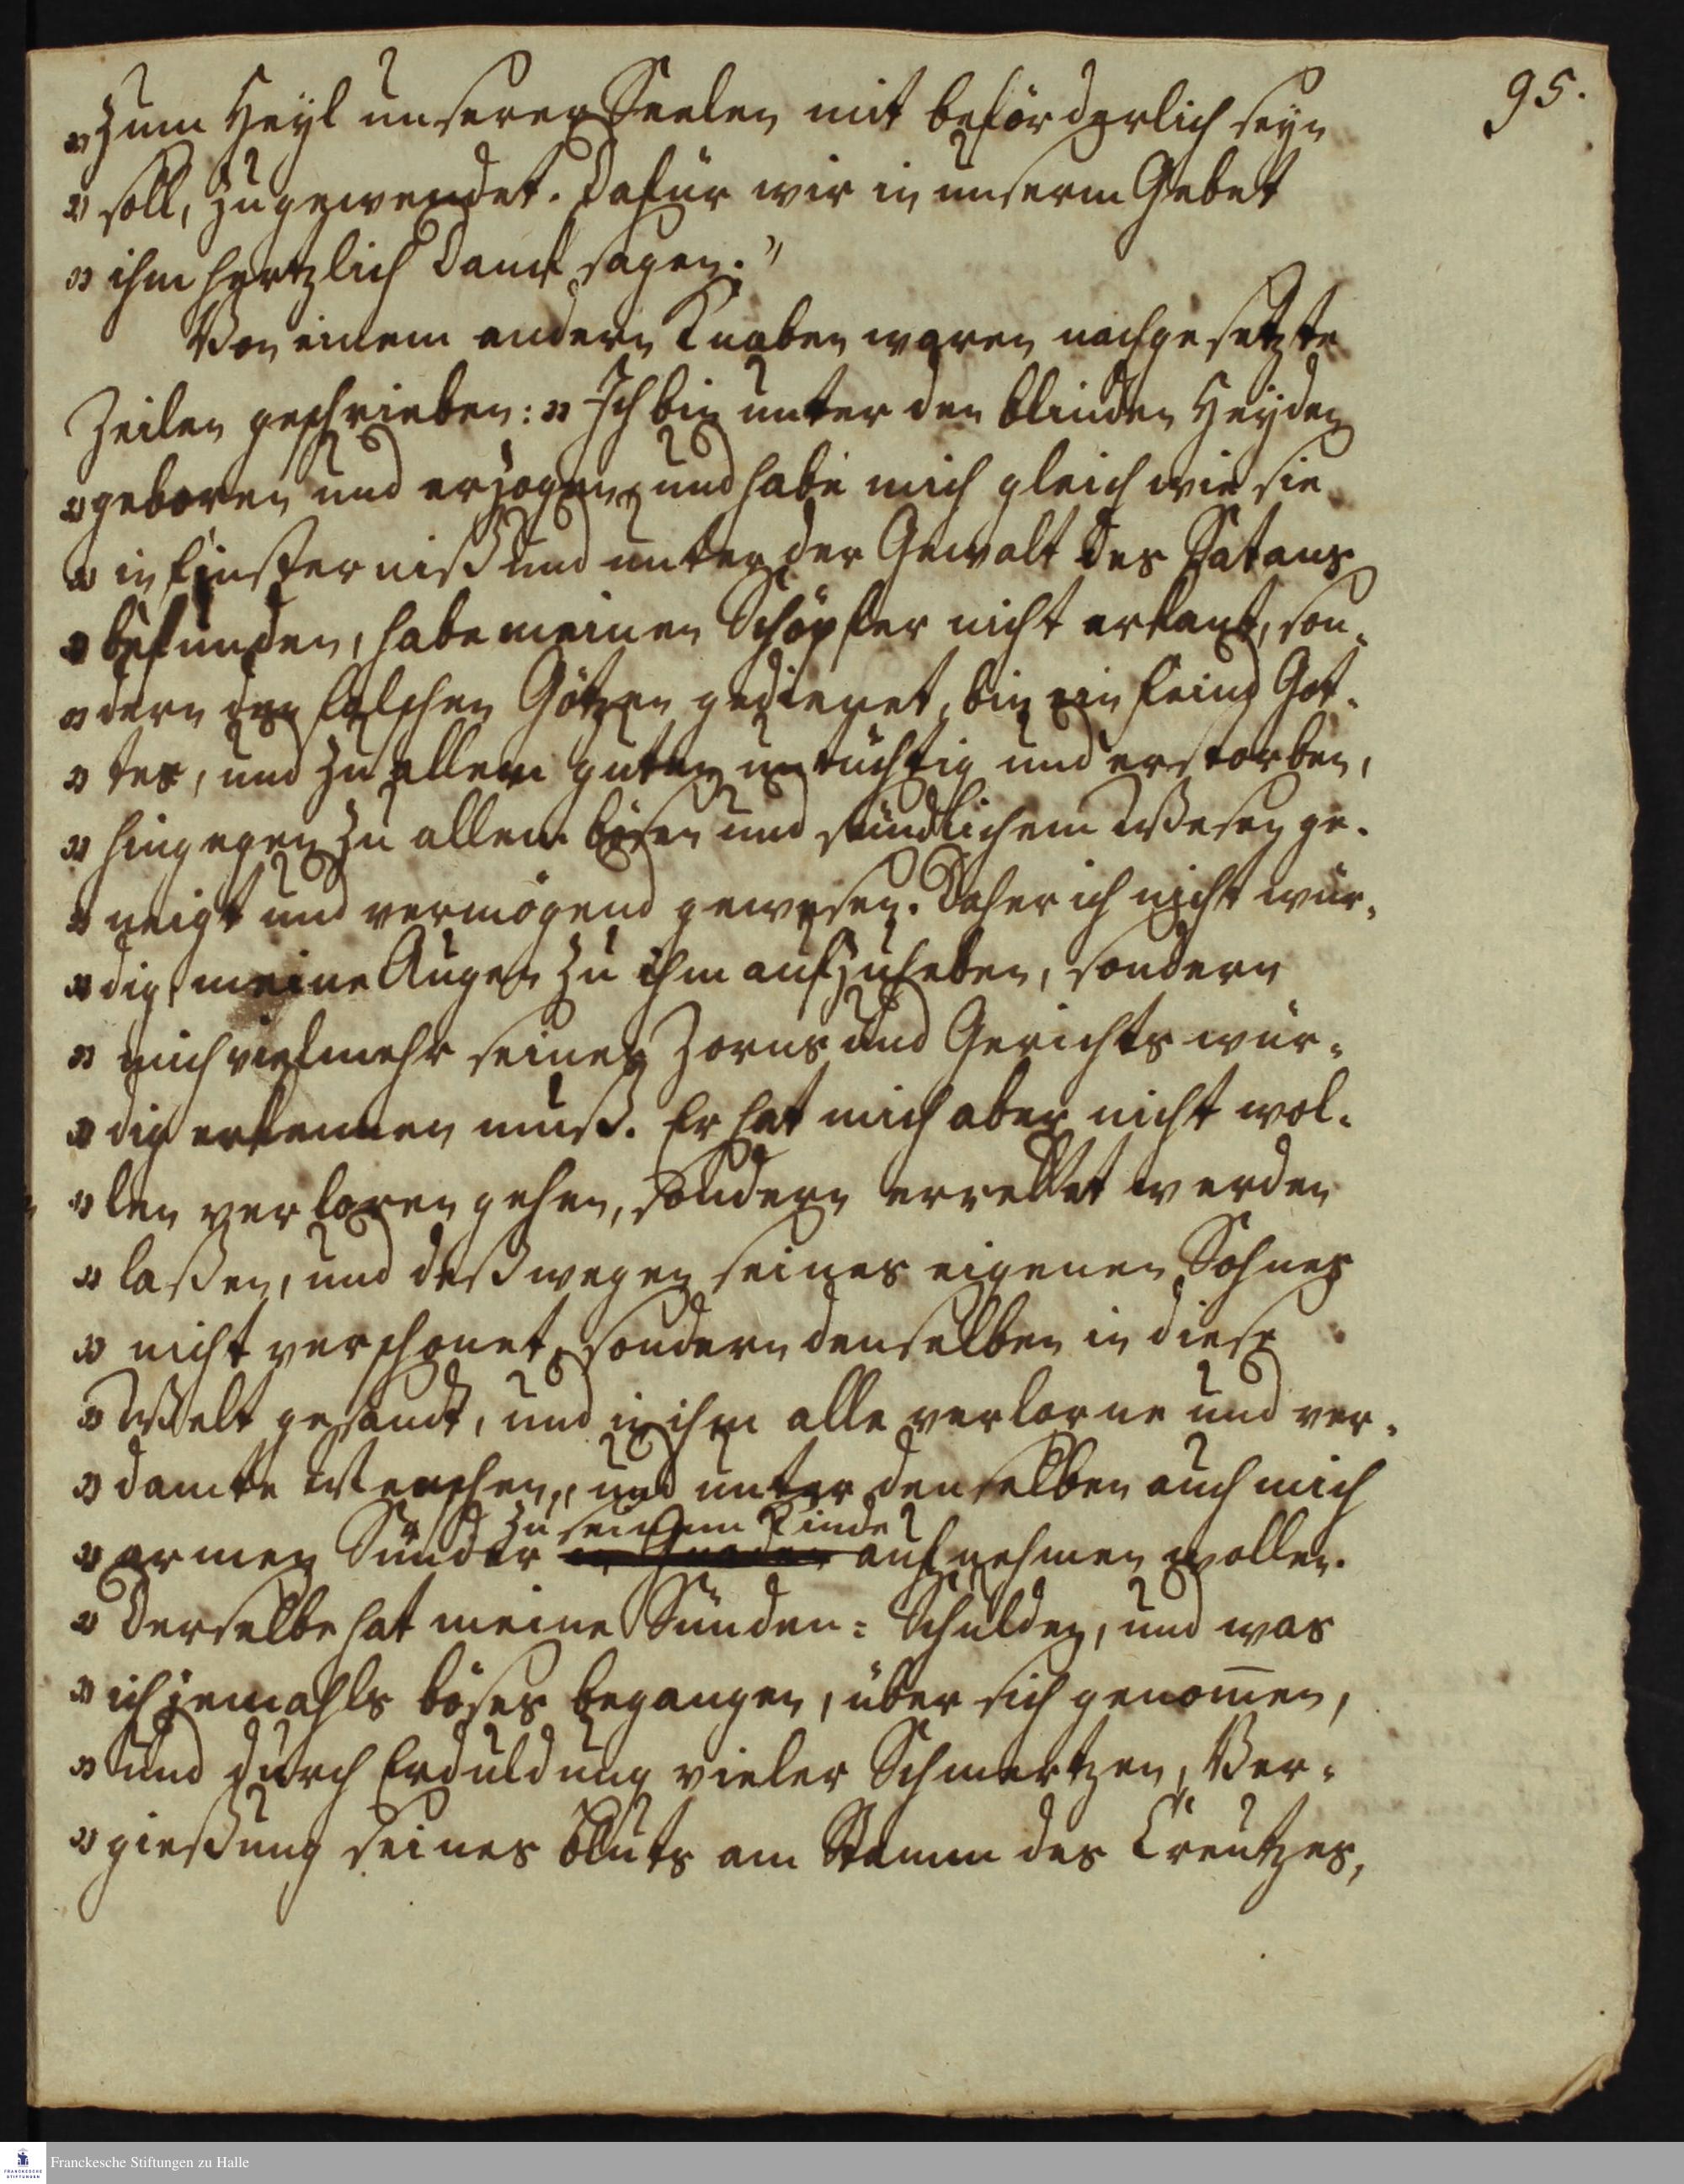 95.
„Zum Heyl unserer Seelen mit beförderlich seyn
„soll, zugewendet. Dafür wir in unserm Gebet
„ihm hertzlich Danck sagen.“
Von einem andern Knaben waren nachgesetzte
Zeilen geschrieben: „Ich bin unter den blinden Heyden
„geboren und erzogen, und habe mich gleich wie sie
„in Finsterniß und unter der Gewalt des Satans
„befunden, habe meinen Schöpfer nicht erkant, son-
„dern den falschen Götzen gedienet, bin ein Feind Got-
„tes, und zu allem guten untüchtig und erstorben,
„hingegen zu allem bösen und sündlichem Wesen ge-
„neigt und vermögend gewesen. Daher ich nicht wür-
„dig, meine Augen zu ihm aufzuheben, sondern
„mich vielmehr seines Zorns und Gerichts wür-
„dig erkennen muß. Er hat mich aber nicht wol-
„len verloren gehen, sondern errettet werden
„laßen, und deßwegen seines eigenen Sohnes
„nicht verschonet, sondern denselben in diese
„Welt gesandt, und in ihm alle verlorne und ver-
„damte Menschen, und unter denselben auch mich
zu seinem Kinde
„armen Sünder in Gnaden aufnehmen wollen.
„Derselbe hat meine Sünden-Schulden, und was
„ich jemahls böses begangen, über sich genom̄en,
„und durch Erduldung vieler Schmertzen, Ver-
„gießung seines Bluts am Stamm des Creutzes,
Franckesche Stiftungen zu Halle